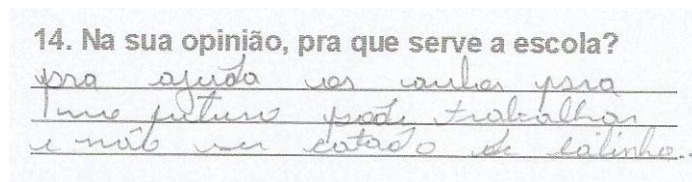 14. Na sua opinião, pra que serve a escola?
pra ajuda os pra
no futuro pode trabalhar
e não ser catado de latinha.